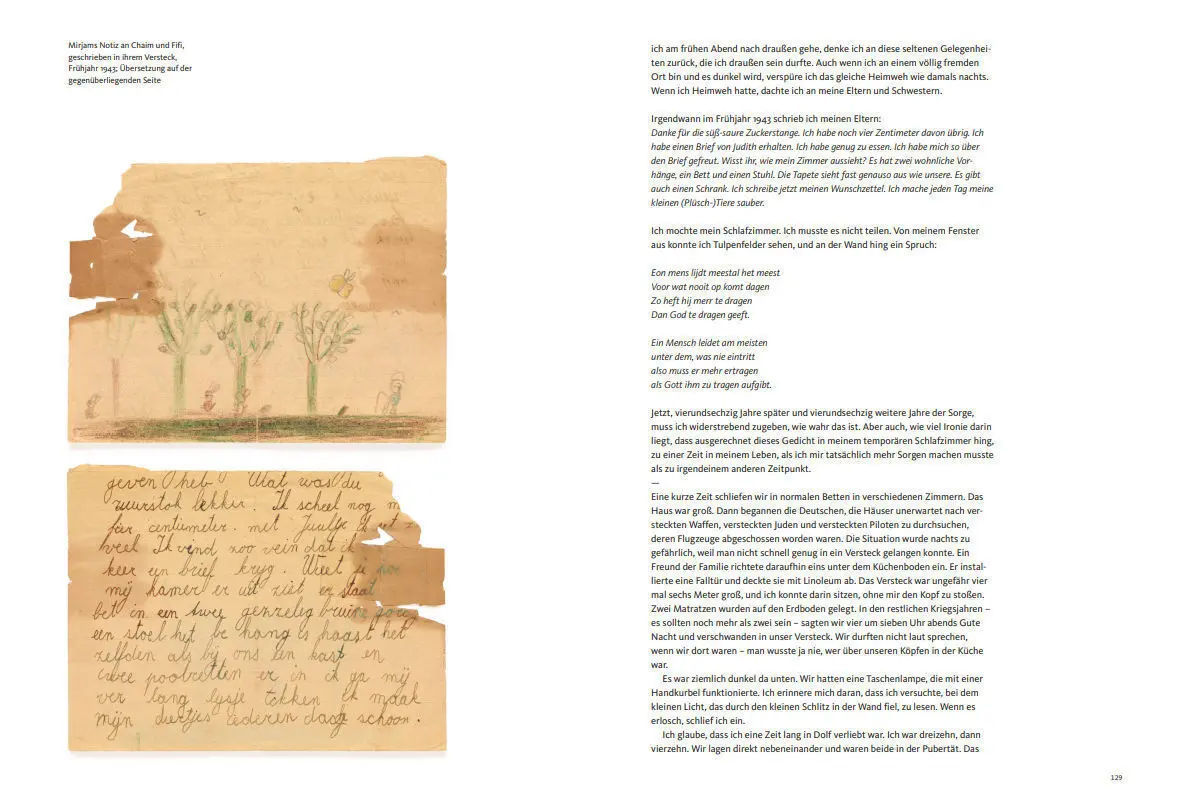 Mirjams Notiz an Chaim und Fifi,
geschrieben in ihrem Versteck,
Frühjahr 1943; Übersetzung auf der
gegenüberliegenden Seite
geven heb Wat was du
zuurstok lekker. Ik scheel nog
fir centiumeter. met
veel Ik vind zoo vein dat ik
keer een brief kryg. Weet je
mÿ kamer er uit ziet er staat
bet in een twee gezzelig bruine
een stoel het be hang is haast het
zelfden als bÿ ons een kast en
twee er in ik ga mÿ
ver lang lysje tekken Ik maak
mÿn diertjes iederen dag schoon.
ich am frühen Abend nach draußen gehe, denke ich an diese seltenen Gelegenhei-
ten zurück, die ich draußen sein durfte. Auch wenn ich an einem völlig fremden
Ort bin und es dunkel wird, verspüre ich das gleiche Heimweh wie damals nachts.
Wenn ich Heimweh hatte, dachte ich an meine Eltern und Schwestern.
Irgendwann im Frühjahr 1943 schrieb ich meinen Eltern:
Danke für die süß-saure Zuckerstange. Ich habe noch vier Zentimeter davon übrig. Ich
habe einen Brief von Judith erhalten. Ich habe genug zu essen. Ich habe mich so über
den Brief gefreut. Wisst ihr, wie mein Zimmer aussieht? Es hat zwei wohnliche Vor-
hänge, ein Bett und einen Stuhl. Die Tapete sieht fast genauso aus wie unsere. Es gibt
auch einen Schrank. Ich schreibe jetzt meinen Wunschzettel. Ich mache jeden Tag meine
kleinen (Plüsch-)Tiere sauber.
Ich mochte mein Schlafzimmer. Ich musste es nicht teilen. Von meinem Fenster
aus konnte ich Tulpenfelder sehen, und an der Wand hing ein Spruch:
Eon mens lijdt meestal het meest
Voor wat nooit op komt dagen
Zo heft hij merr te dragen
Dan God te dragen geeft.
Ein Mensch leidet am meisten
unter dem, was nie eintritt
also muss er mehr ertragen
als Gott ihm zu tragen aufgibt.
Jetzt, vierundsechzig Jahre später und vierundsechzig weitere Jahre der Sorge,
muss ich widerstrebend zugeben, wie wahr das ist. Aber auch, wie viel Ironie darin
liegt, dass ausgerechnet dieses Gedicht in meinem temporären Schlafzimmer hing,
zu einer Zeit in meinem Leben, als ich mir tatsächlich mehr Sorgen machen musste
als zu irgendeinem anderen Zeitpunkt.
—
Eine kurze Zeit schliefen wir in normalen Betten in verschiedenen Zimmern. Das
Haus war groß. Dann begannen die Deutschen, die Häuser unerwartet nach ver-
steckten Waffen, versteckten Juden und versteckten Piloten zu durchsuchen,
deren Flugzeuge abgeschossen worden waren. Die Situation wurde nachts zu
gefährlich, weil man nicht schnell genug in ein Versteck gelangen konnte. Ein
Freund der Familie richtete daraufhin eins unter dem Küchenboden ein. Er instal-
lierte eine Falltür und deckte sie mit Linoleum ab. Das Versteck war ungefähr vier
mal sechs Meter groß, und ich konnte darin sitzen, ohne mir den Kopf zu stoßen.
Zwei Matratzen wurden auf den Erdboden gelegt. In den restlichen Kriegsjahren –
es sollten noch mehr als zwei sein – sagten wir vier um sieben Uhr abends Gute
Nacht und verschwanden in unser Versteck. Wir durften nicht laut sprechen,
wenn wir dort waren – man wusste ja nie, wer über unseren Köpfen in der Küche
war.
Es war ziemlich dunkel da unten. Wir hatten eine Taschenlampe, die mit einer
Handkurbel funktionierte. Ich erinnere mich daran, dass ich versuchte, bei dem
kleinen Licht, das durch den kleinen Schlitz in der Wand fiel, zu lesen. Wenn es
erlosch, schlief ich ein.
Ich glaube, dass ich eine Zeit lang in Dolf verliebt war. Ich war dreizehn, dann
vierzehn. Wir lagen direkt nebeneinander und waren beide in der Pubertät. Das
129